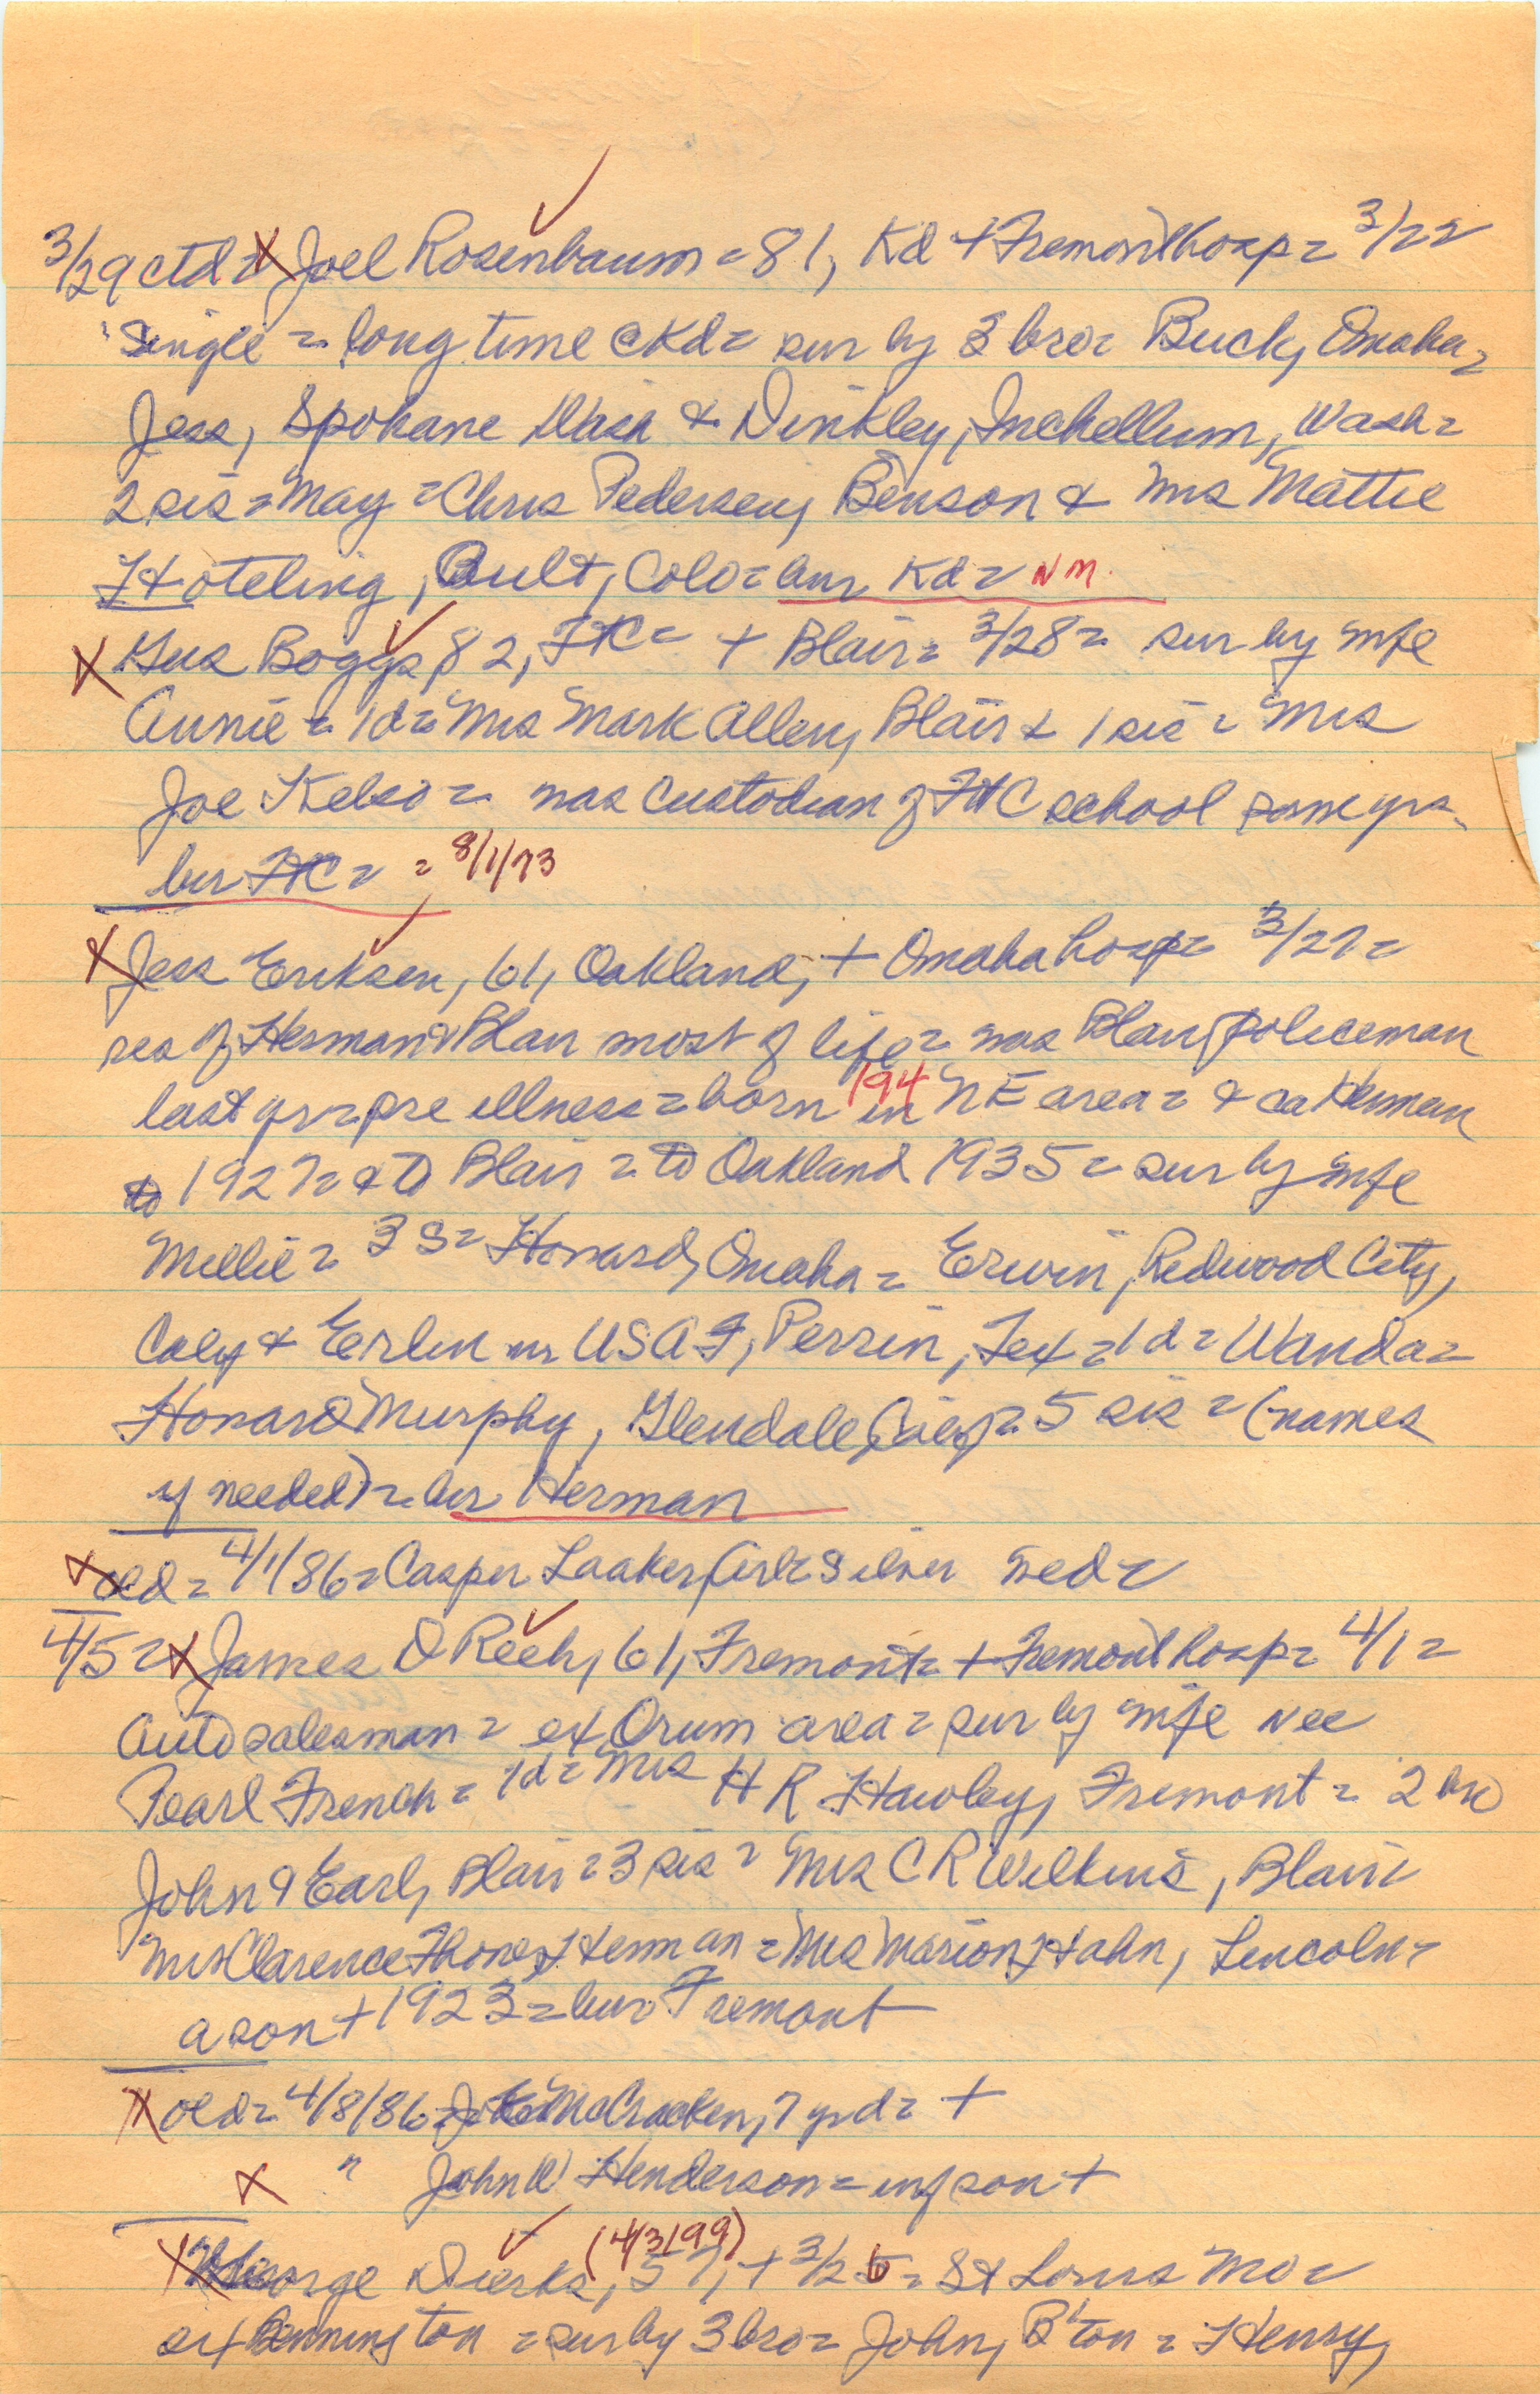 3/29 ctd = X Joel Rosenbaum = 81, Kd + Fremont hosp = 3/22
single = long time c Kd = sur by 3 bro = Buck, Omaha =
Jess, Spokane Wash & Dinkley, Inchellum, Wash =
2 sis = May = Chris Pedersen, Benson & Mrs Mattie
Hoteling, Ault, Colo = bur Kd = NM.
X Gus Boggs, 82, FtC = + Blair = 3/28 = sur by wife
Annie = 1d = Mrs Mark Allen, Blair & 1 sis = Mrs
Joe Kelso = was custodian of FtC school some yrs -
bur FtC = = 8/1/73
X Jess Eriksen, 61, Oakland, + Omaha hosp = 3/27 =
res of Herman & Blair most of life = was Blair policeman
last yr = pre illness = born in 194 NE area = & ca Herman
to 1927 = & to Blair = to Oakland 1935 = sur by wife
Millie = 3 S = Howard, Omaha = Erwin, Redwood City,
Calif & Erlin in USAF, Perrin, Tex = 1 d = Wanda =
Howard Murphy, Glendale, Calif = 5 sis = (names
if needed) = bur Herman
X old = 4/1/86 = Casper Laaker, Arlr silver wed =
4/5 = X James D Reeh, 61, Fremont = + Fremont hosp = 4/1 =
Auto salesman = ex Orum area = sur by wife nee
Pearl French = 1d = Mrs H R Hawley, Fremont = 2 bro
John & Earl, Blair = 3 sis = Mrs C R Wilkins, Blair =
Mrs Clarence Thone, Herman = Mrs Marion Hahn, Lincoln =
a son + 1923 = bur Fremont
X old = 4/8/86 = McCracken, 7 yr d = +
X " John W Henderson = inf son +
X George Dierks, (4/3/99) 57, + 3/26 = St Louis Mo =
ex Bennington = sur by 3 bro = John, B'ton = Henry,